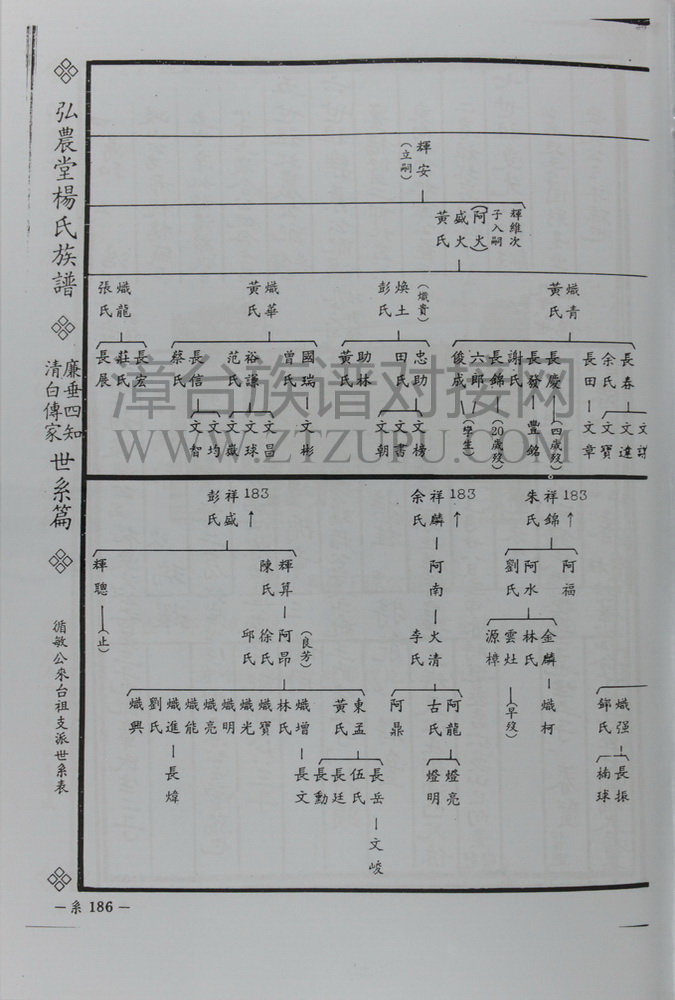 弘農堂楊氏族譜
廉垂四知
清白傳家
世系篇
循敏公來台祖支派世系表
輝安
(立嗣)
輝維次
子入嗣
(阿火)
盛火
黃氏
熾青
黃氏
(熾貴)
煥土
彭氏
熾華
黃氏
熾龍
張氏
長春
余氏
長田
長慶
長發
謝氏
長錦
六郎
俊成
忠助
田氏
助林
黃氏
國瑞
曾氏
裕謙
范氏
長信
蔡氏
長宏
莊氏
長展
文達
文寶
文章
(四歲歿)
豐銘
(20歲歿)
(學生)
文榜
文書
文朝
文彬
文昌
文球
文嶽
文均
文智
183
祥錦
朱氏
183
祥麟
余氏
183
祥盛
彭氏
阿福
阿水
劉氏
阿南
輝算
陳氏
輝聰
金麟
林氏
雲灶
源樟
火清
李氏
(良芳)
阿昂
徐氏
邱氏
(止)
熾强
鄧氏
熾柯
(早歿)
阿龍
古氏
阿鼎
東孟
黃氏
熾增
林氏
熾寶
熾光
熾明
熾亮
熾能
熾進
劉氏
熾興
長振
楠球
燈亮
燈明
長岳
伍氏
長廷
長勳
長文
長煒
文峻
—系 186—
漳台族谱对接网
WWW.ZTZUPU.COM